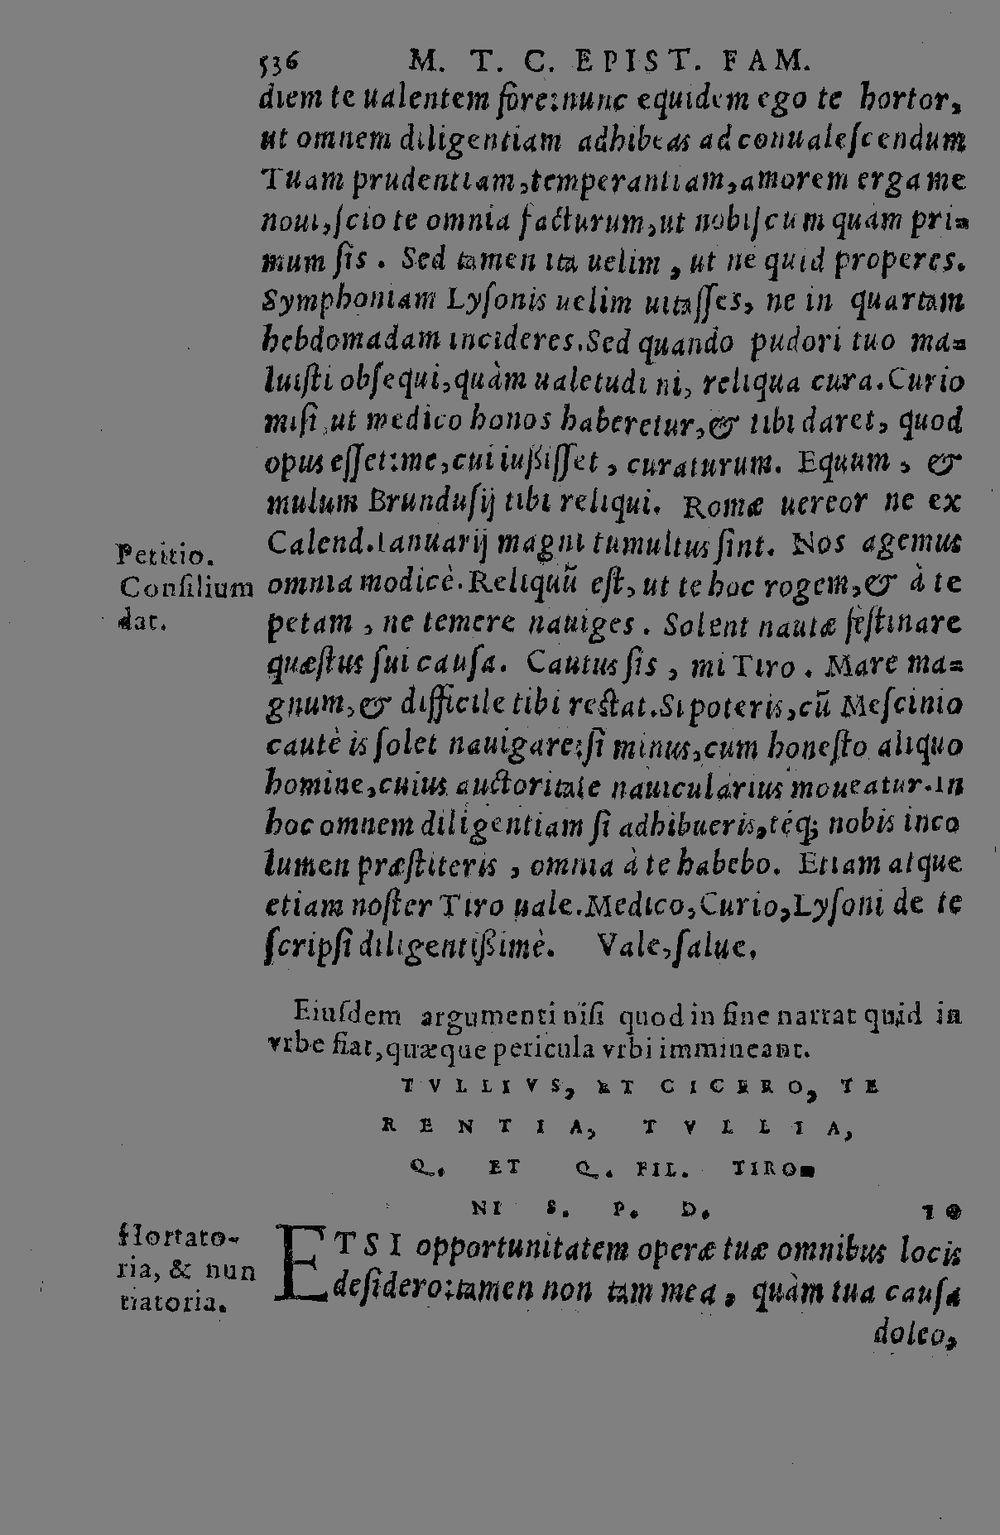 536 M. T. C. EPIST. FAM.
diem te ualentem fore:nunc equidem ego te hortor,
ut omnem diligentiam adhibeas ad conualeſcendum
Tuam prudentiam,temperantiam,amorem erga me
noui,ſcio te omnia facturum,ut nobiſcum quam pri=
mum ſis. Sed tamen ita uelim, ut ne quid properes.
Symphoniam Lyſonis uelim uitaſſes, ne in quartam
hebdomadam incideres.Sed quando pudori tuo ma=
luiſti obſequi,quàm ualetudini, reliqua cura.Curio
miſi,ut medico honos haberetur,& tibi daret, quod
opus eſſet:me,cui iuſſiſſet, curaturum. Equum, &
mulum Brunduſij tibi reliqui. Romæ uereor ne ex
Calend.Ianuarij magni tumultus ſint. Nos agemus
Petitio.
Conſilium
dat.
omnia modicè.Reliquū eſt,ut te hoc rogem,& à te
petam, ne temere nauiges. Solent nautæ feſtinare
quæſtus ſui cauſa. Cautus ſis, mi Tiro. Mare ma=
gnum,& difficile tibi reſtat.Si poteris,cū Meſcinio
cautè is ſolet nauigare:ſi minus,cum honeſto aliquo
homine,cuius auctoritate nauicularius moueatur.In
hoc omnem diligentiam ſi adhibueris,téq; nobis inco
lumen præſtiteris, omnia à te habebo. Etiam atque
etiam noſter Tiro uale.Medico,Curio,Lyſoni de te
ſcripſi diligentiſſimè. Vale,ſalue.
Eiuſdem argumenti niſi quod in fine narrat quid in
vrbe fiat,quæque pericula vrbi immineant.
TVLLIVS, ET CICERO, TE
RENTIA, TVLLIA,
Q. ET Q. FIL. TIRO=
NI S. P. D. 10
Hortato-
ria, & nun
tiatoria.
ETSI opportunitatem operæ tuæ omnibus locis
deſidero:tamen non tam mea, quàm tua cauſa
doleo,